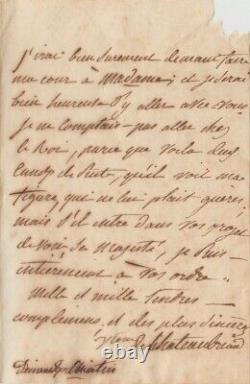 j'irai bien surement demain faire
ma cour à Madame; et je serai
bien heureuse d'y aller avec vous
je ne comptais pas aller chez
le Roi, parce que voila
Lundy de suite, qu'il voit ma
figure, qui ne lui plait guères,
mais s'il entre dans vos projets
de voir Sa Majesté, je suis
entièrement à vos ordres.
Mille et mille tendres
complemens, et des plus sincères
de Chateaubriand